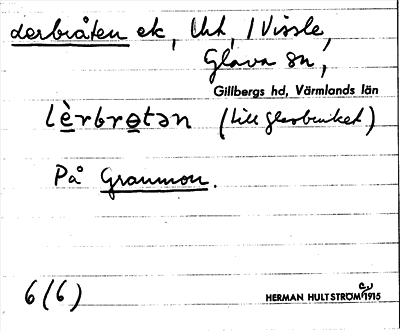 Lerbråten ek, Utt, 1 Vissle,
Glava sn,
Gillbergs hd, Värmlands län
lèrbrətən (till glasbruket)
På Grammon.
6(6)
HERMAN HULTSTRÖM 1915